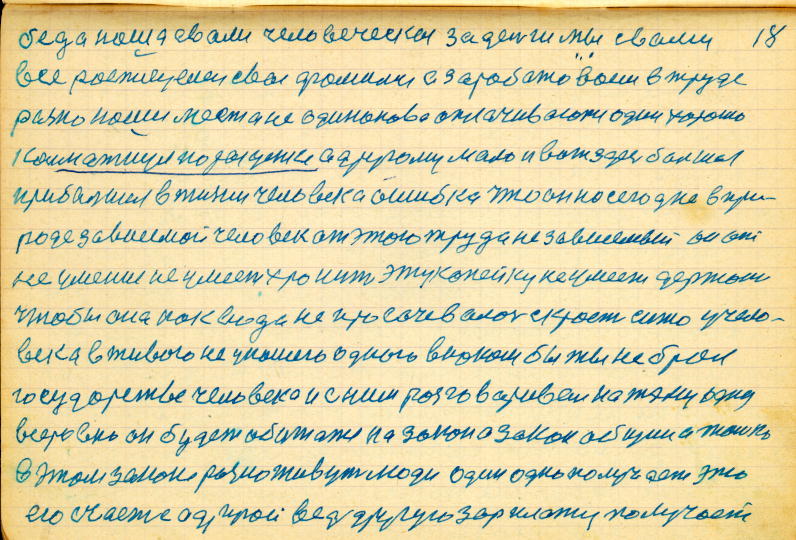 беда наша с вами человеческая за деньги мы с вами 18
все расписуемся свои фамилии а заработо вами в труде
разно наши места не одинаково оплачивают один хорошо
а другому мало и вот здесь большая
прибавился в жизни человека ошибка что он на сегодне в при-
роде зависемой человек от этого труда не зависемый он от
не умение не умеет хронить эту копейку не умеет держать
чтобы она никуда не просачевалас скрость сито у чело-
века в живого не упошего одного в каком бы ты не брал
государстве человека и с ним розговаривал на тему одну
всеравно он будет обитатся на закон а закон общий а только
в этом законе разно живут люди один одно получает это
его счастье а другой ведь другую зарплату получает